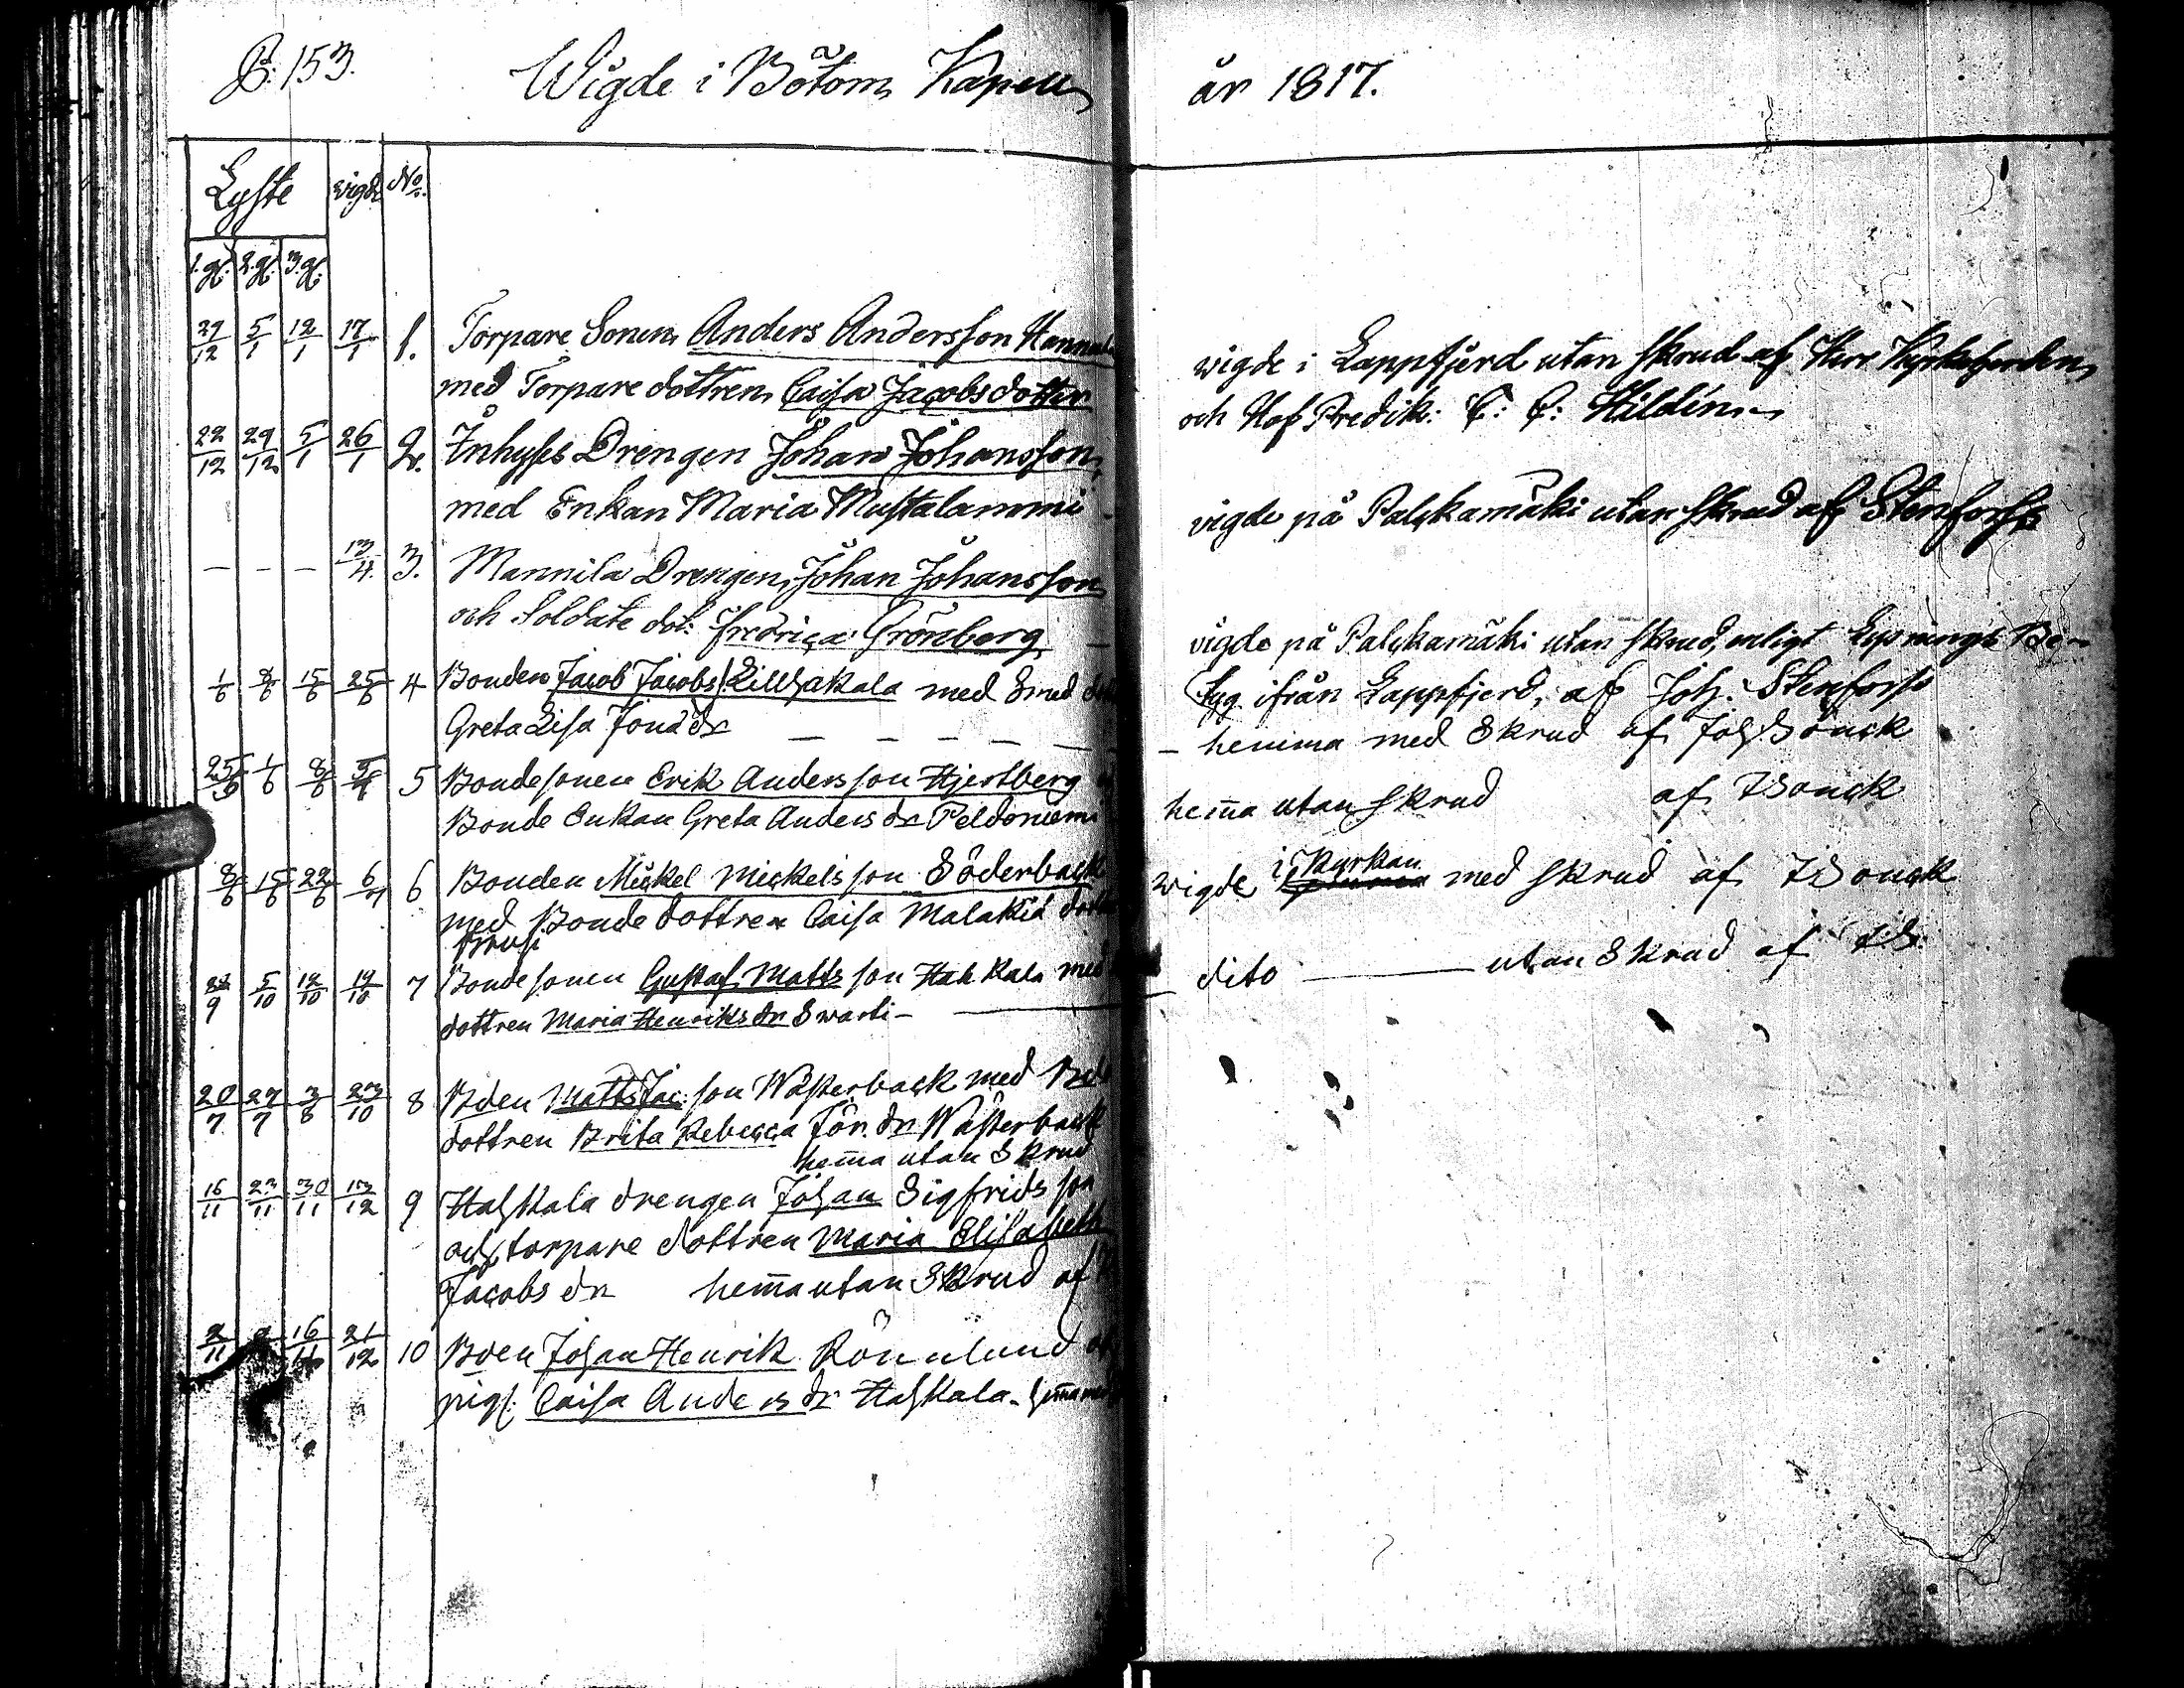 P: 153. Wigde i Bötom Kapell år 1817.
Lyste wigde No.
1.g. 2.g. 3.g.
29/12 5/1 12/1 17/1 1. Torpare Sonen Anders Andersson
med Torpare dottren Caisa Jacobsdotter
wigde i Lappfjerd utan skrud af Herr Kyrkoherden
och Hof Predik: C: C: Hildén
22/12 29/12 5/1 26/1 2. Inhyses Drengen Johan Johansson
med Enkan Maria Mustalammi
vigde på Palckamäki utan skrud af Stenforss
— — — 13/4. 3. Mannila Drengen Johan Johansson
och Soldate dot: Fredrica Grönberg
vigde på Palckamäki utan skrud, enligt Lysnings Be-
tyg ifrån Lappfjerd, af Joh: Stenforss
1/6 8/6 15/6 25/6 4 Bonden Jacob Jacobs Lillhakala med
Greta Lisa Jona dr — — — — — — hemma med Skrud af Joh Bonck
25/5 1/6 8/6 5 Bondesonen Erik Andersson Hjertberg
Bonde Enkan Greta Anders dr Peldoniemi
hema utan skrud af Bonck
8/6 15/6 22/6 6/7 6 Bonden Mickel Mickelsson Söderback
med Bonde dottren Caisa Malakia
wigde i Kyrkan med skrud af Bonck
5/10 12/10 19/10 7 Bondesonen Gustaf Mattsson Hahkala med
dottren Maria Henriks dr Swarti —
dito — utan Skrud af
20/7 27/7 3/8 23/10 8 Bden Matts Jac: son Wästerback med
dottren Brita Rebecca Jön. dr Wästerback
hema utan Skrud
16/11 23/11 30/11 13/12 9 Hahkala drengen Johan Sigfridsson
och torpare dottren Maria Elisabeth
Jacobs dr hema utan Skrud af
2/11 9 16/11 21/12 10 Bden Johan Henrik Rönnlund
pig: Caisa Anders dr Hahkala.